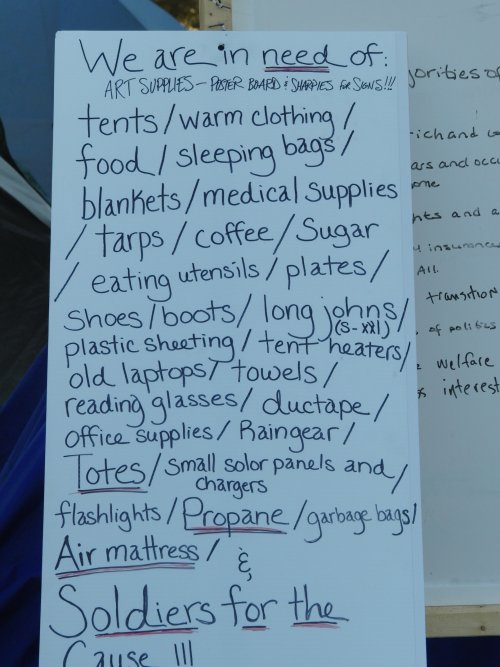 We are in need of:
ART SUPPLIES — POSTER BOARD & SHARPIES for SIGNS!!!
tents / warm clothing /
food / sleeping bags /
blankets / medical supplies
/ tarps / coffee / Sugar
/ eating utensils / plates /
Shoes / boots / long johns /
(S-XXl)
plastic sheeting / tent heaters /
old laptops / towels /
reading glasses / ductape /
office supplies / Raingear /
Totes / small solor panels and /
chargers
flashlights / Propane / garbage bags /
Air mattress /
&
Soldiers for the
Cause !!!
orities of
ich and
ars and occu
ome
hts and a
insurance
All.
transition
of politics
welfare
interest